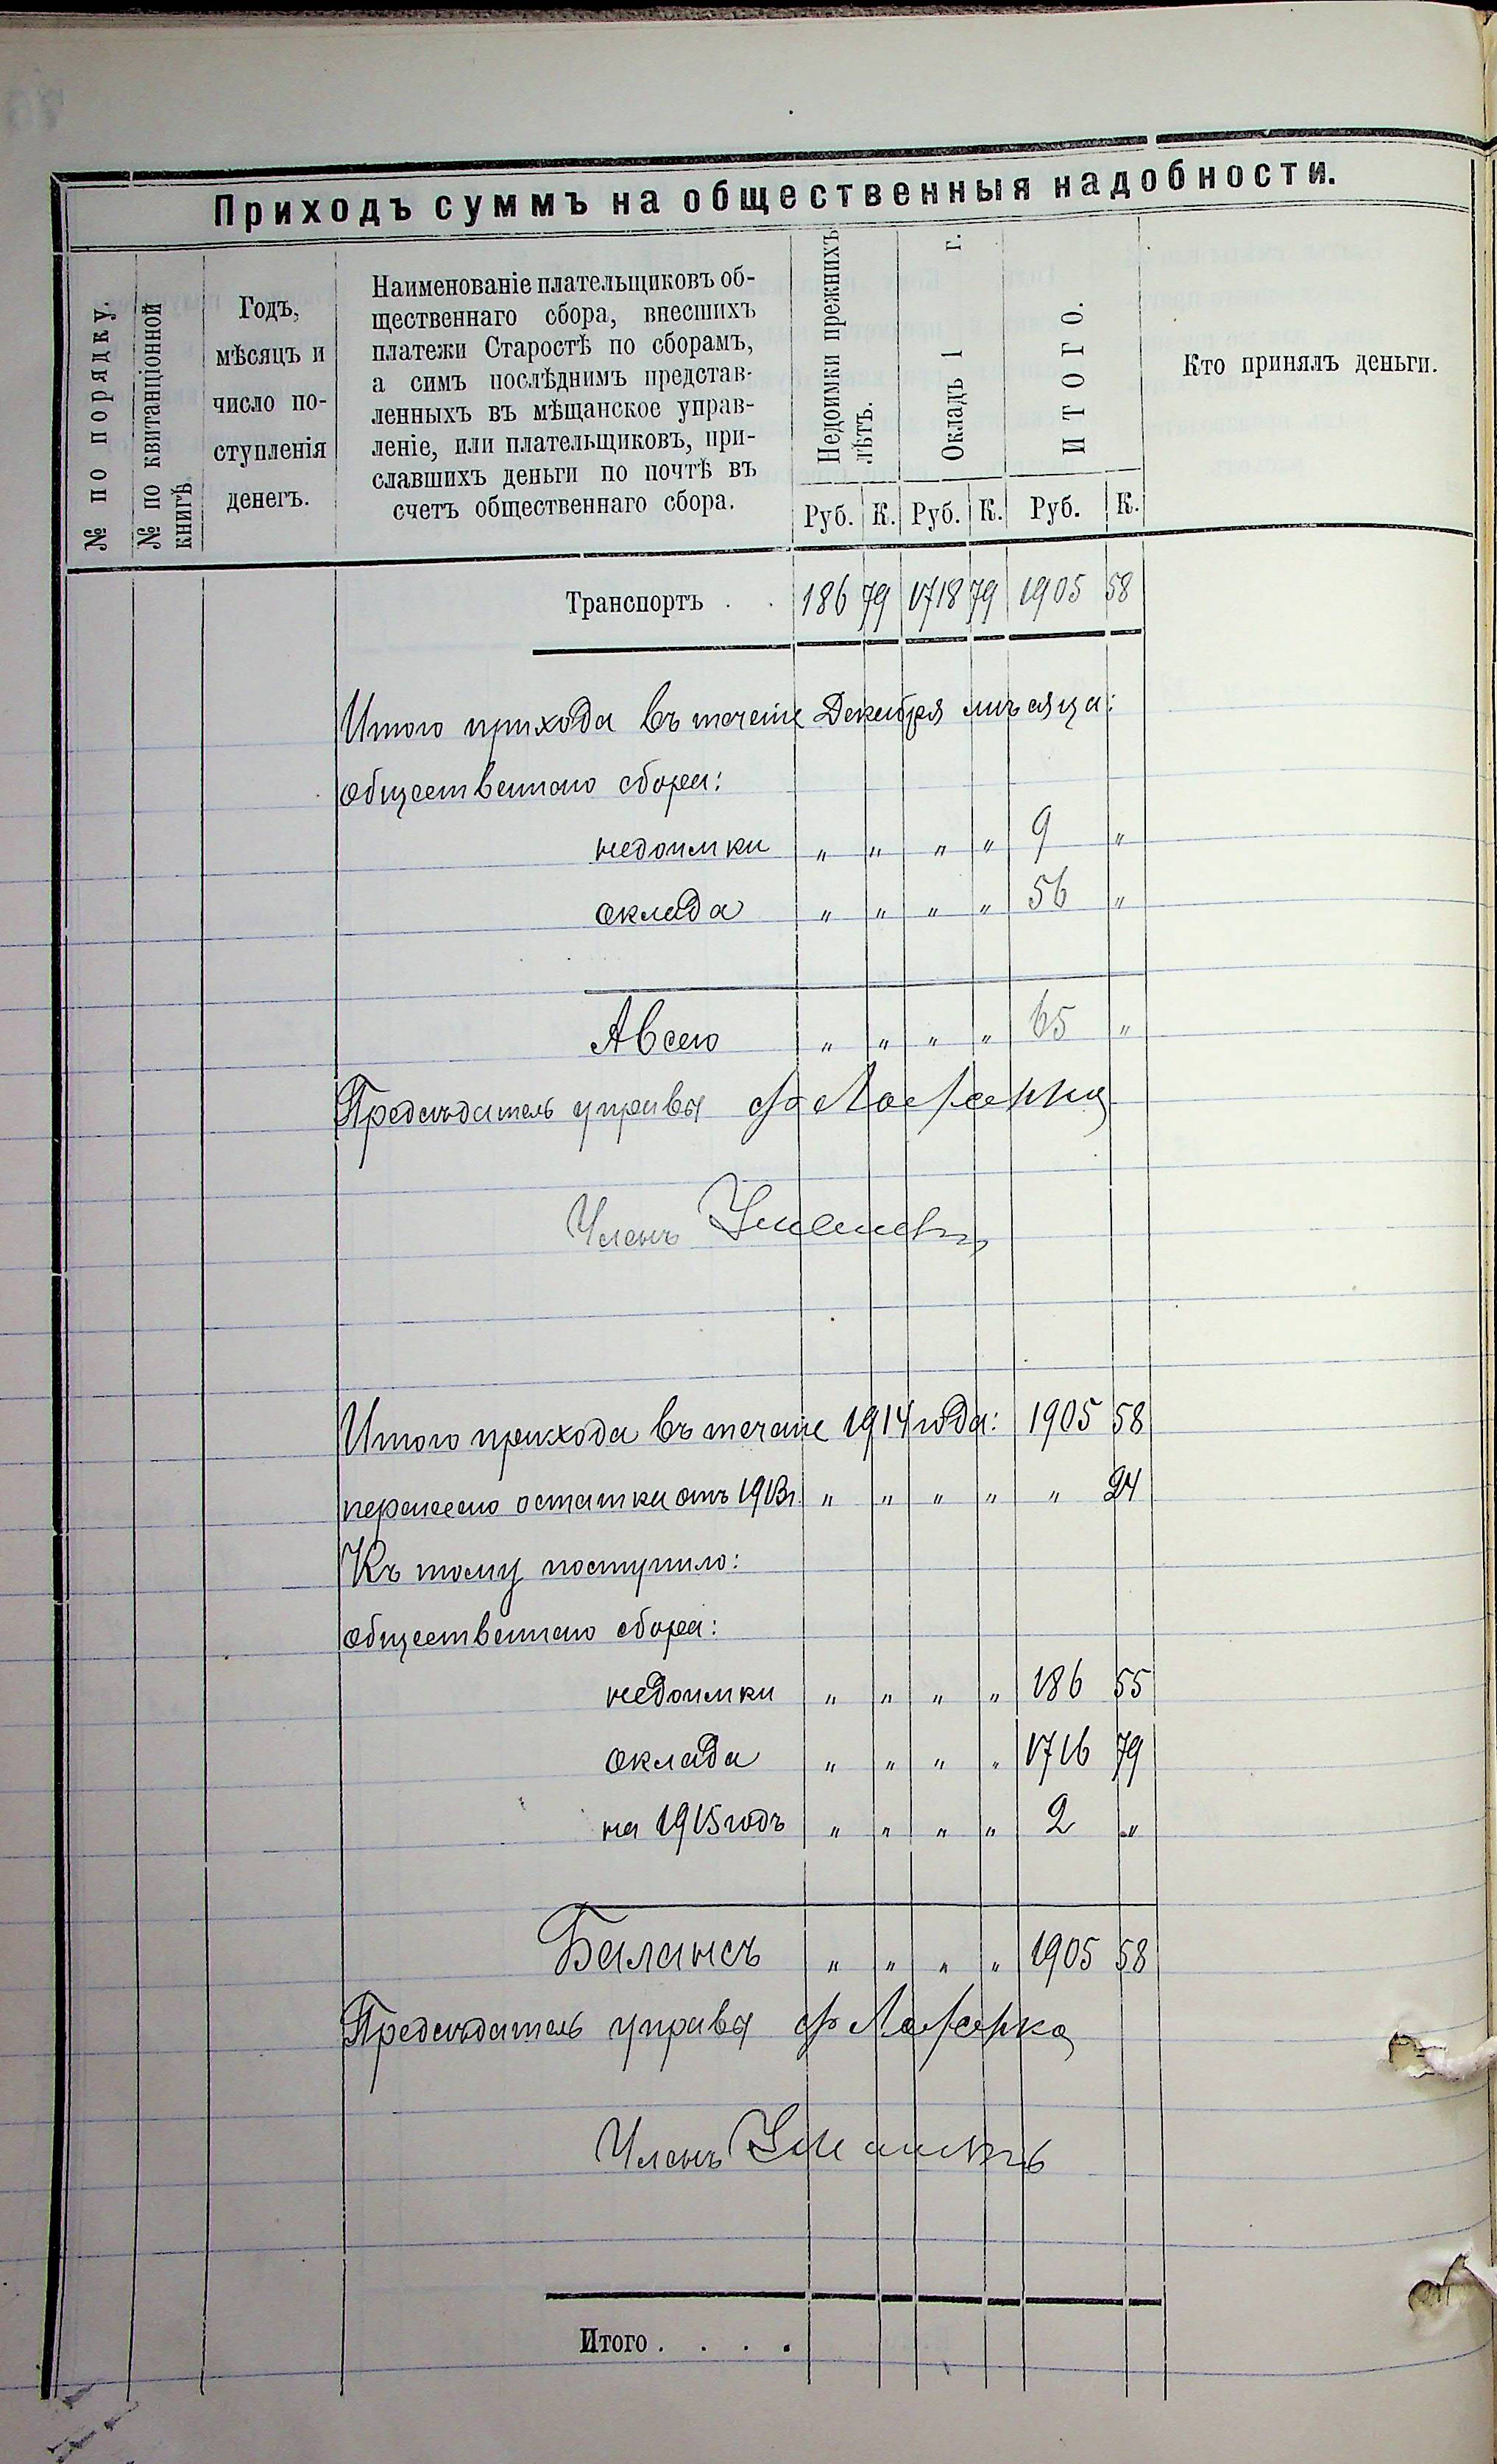 Приходъ суммъ на общественныя надобности.
№ по порядку.
№ по квитанціонной
книгѣ.
Годъ,
мѣсяцъ и
число по-
ступленія
денегъ.
Наименованіе плательщиковъ об-
щественнаго сбора, внесшихъ
платежи Старостѣ по сборамъ,
а симъ послѣднимъ представ-
ленныхъ въ мѣщанское управ-
леніе, или плательщиковъ, при-
славшихъ деньги по почтѣ въ
счетъ общественнаго сбора.
Недоимки прежнихъ
лѣтъ.
Окладъ 1 г.
ИТОГО.
Кто принялъ деньги.
Руб. К. Руб. К. Руб. К.
Транспортъ . . 186 79 1718 79 1905 58
Итого прихода въ теченіе Декабря мѣсяца:
общественнаго сбора:
недоимки " " " " 9 "
оклада " " " " 56 "
А всего " " " " 65 "
Предсѣдатель управы
Членъ
Итого прихода въ теченіе 1914 года: 1905 58
перенесено остатки отъ 1913 г. " " " " " 24
Къ тому поступило:
общественнаго сбора:
недоимки " " " " 186 55
оклада " " " " 1716 79
на 1915 годъ " " " " 2 "
Балансъ " " " " 1905 58
Предсѣдатель управы
Членъ
Итого . . . .